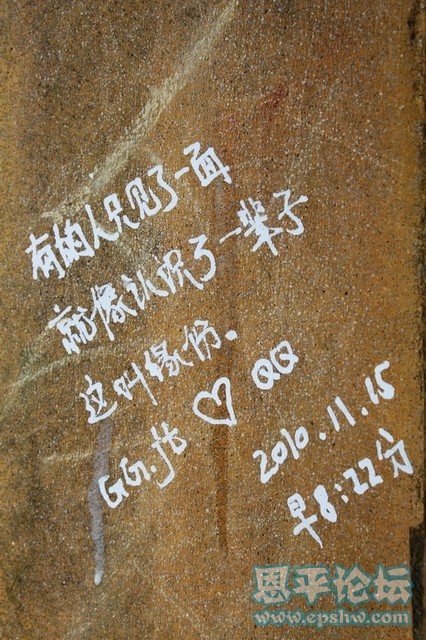 有的人只见了一面
就像认识了一辈子
这叫缘份。
GG.比 ♡ QQ
2010.11.15
早8:22分
恩平论坛
www.epshw.com